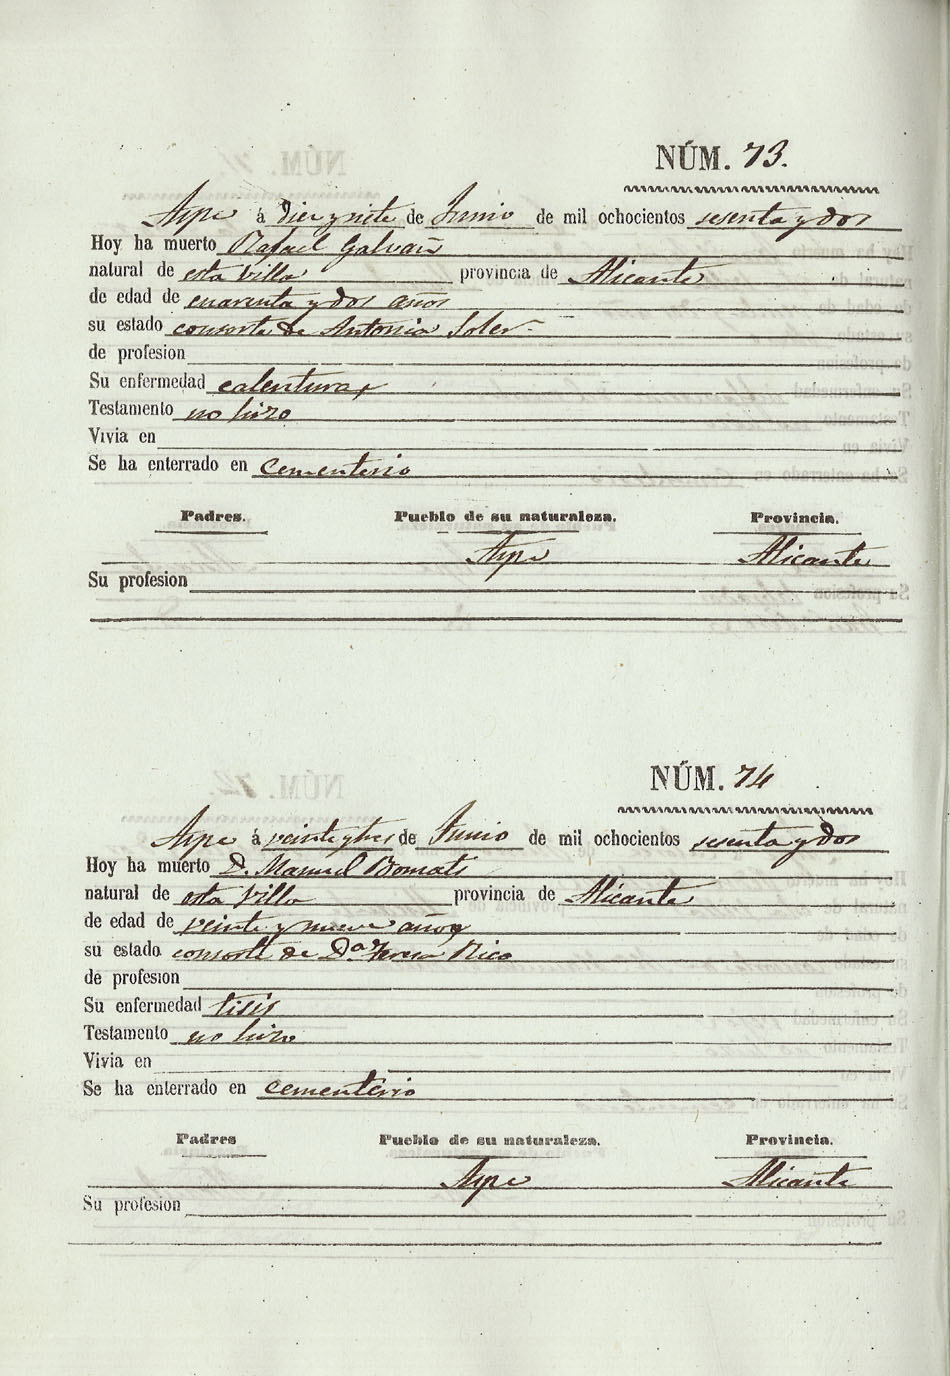 NÚM. 73.
Aspe á diez y siete de Junio de mil ochocientos sesenta y dos
Hoy ha muerto Rafael Galvañ
natural de esta Villa provincia de Alicante
de edad de cuarenta y dos años
su estado consorte de Antonia Soler
de profesion
Su enfermedad calenturas
Testamento no hizo
Vivia en
Se ha enterrado en cementerio
Padres. Pueblo de su naturaleza. Provincia.
Aspe Alicante
Su profesion
NÚM. 74
Aspe á veinte y tres de Junio de mil ochocientos sesenta y dos
Hoy ha muerto D. Manuel Bomati
natural de esta Villa provincia de Alicante
de edad de veinte y nueve años
su estado consorte de Da. Teresa Rico
de profesion
Su enfermedad tisis
Testamento no hizo
Vivia en
Se ha enterrado en cementerio
Padres Pueblo de su naturaleza. Provincia.
Aspe Alicante
Su profesion